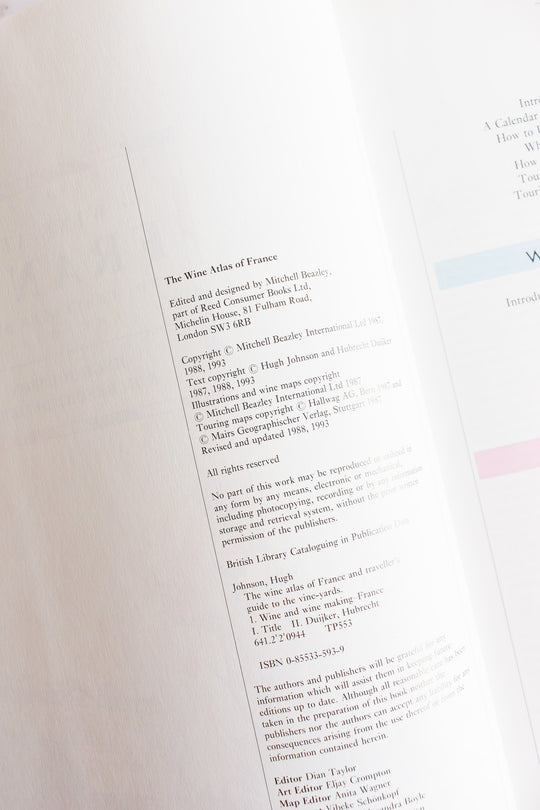 The Wine Atlas of France
Edited and designed by Mitchell Beazley,
part of Reed Consumer Books Ltd,
Michelin House, 81 Fulham Road,
London SW3 6RB
Copyright © Mitchell Beazley International Ltd 1987,
1988, 1993
Text copyright © Hugh Johnson and Hubrecht Duijker
1987, 1988, 1993
Illustrations and wine maps copyright
© Mitchell Beazley International Ltd 1987
Touring maps copyright © Hallwag AG, Bern 1987 and
© Mairs Geographischer Verlag, Stuttgart 1987
Revised and updated 1988, 1993
All rights reserved
No part of this work may be reproduced or utilized in
any form by any means, electronic or mechanical,
including photocopying, recording or by any information
storage and retrieval system, without the prior written
permission of the publishers.
British Library Cataloguing in Publication Data
Johnson, Hugh
The wine atlas of France and traveller's
guide to the vine-yards.
1. Wine and wine making France
I. Title II. Duijker, Hubrecht
641.2'2'0944 TP553
ISBN 0-85533-593-9
The authors and publishers will be grateful for any
information which will assist them in keeping future
editions up to date. Although all reasonable care has been
taken in the preparation of this book neither the
publishers nor the authors can accept any liability for any
consequences arising from the use thereof or from the
information contained herein.
Editor Dian Taylor
Art Editor Eljay Crompton
Map Editor Anita Wagner
Schonkopf
Boyle
Intro
A Calendar
How to
Wh
How
Tou
Tour
W
Introd